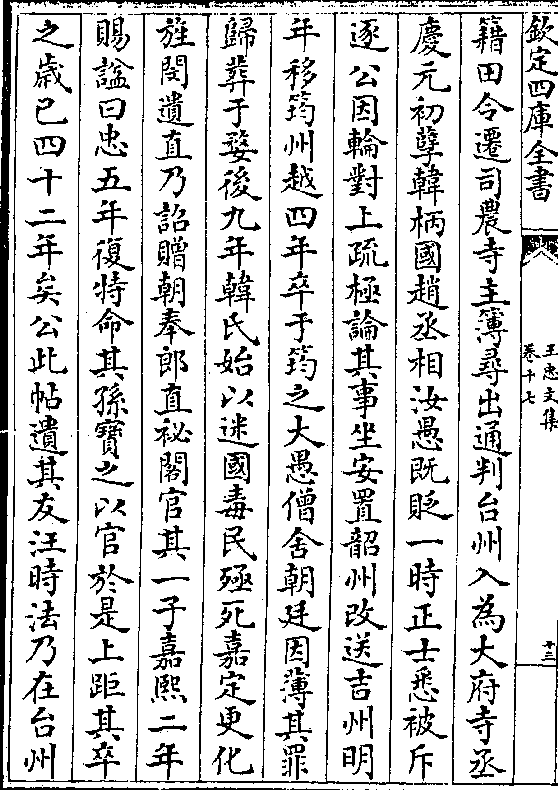 欽定四庫全書
王忠文集
卷十七
十三
籍田令遷司農寺主簿尋出通判台州入為大府寺丞
慶元初孽韓柄國趙丞相汝愚既貶一時正士悉被斥
逐公因輪對上疏極論其事坐安置韶州改送吉州明
年移筠州越四年卒于筠之大愚僧舍朝廷因薄其罪
歸葬于婺後九年韓氏始以迷國毒民殛死嘉定更化
旌閔遺直乃詔贈朝奉郎直祕閣官其一子嘉熙二年
賜諡曰忠五年復特命其孫寶之以官於是上距其卒
之歲已四十二年矣公此帖遺其友汪時法乃在台州